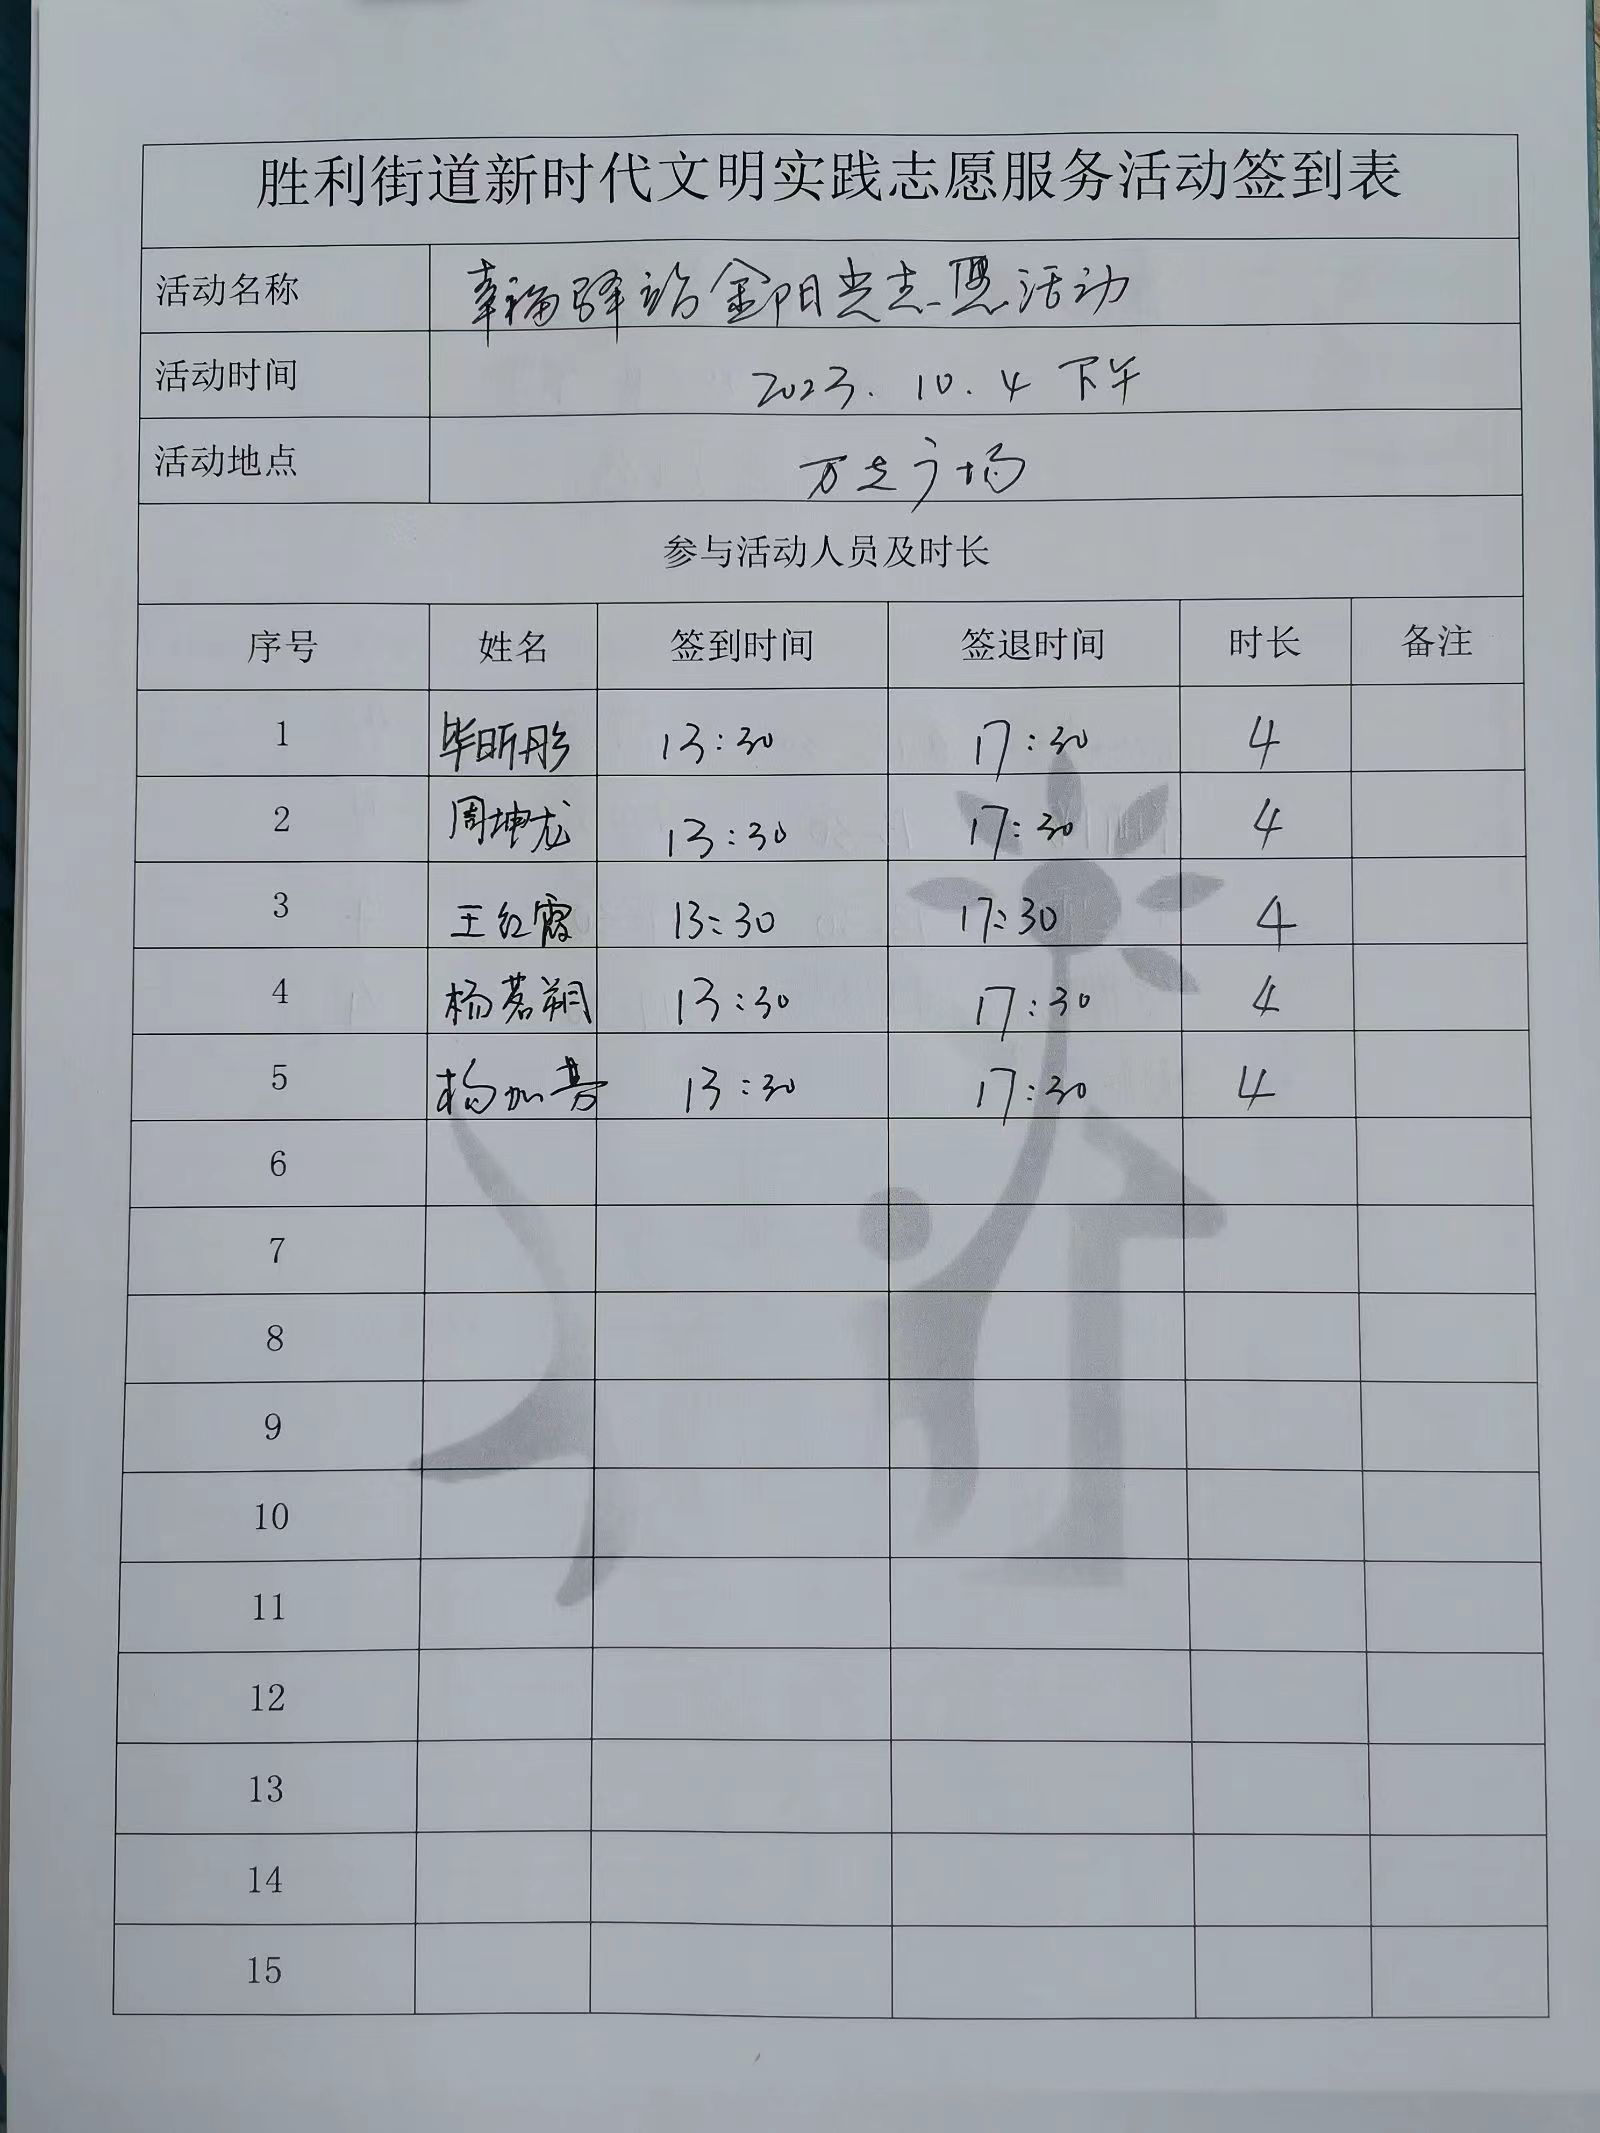 胜利街道新时代文明实践志愿服务活动签到表
活动名称 幸福驿站金阳光志愿活动
活动时间 2023.10.4 下午
活动地点 万达广场
参与活动人员及时长
序号 姓名 签到时间 签退时间 时长 备注
1 毕昕彤 13:30 17:30 4
2 周坤龙 13:30 17:30 4
3 王红霞 13:30 17:30 4
4 杨茗朔 13:30 17:30 4
5 杨加 13:30 17:30 4
6
7
8
9
10
11
12
13
14
15